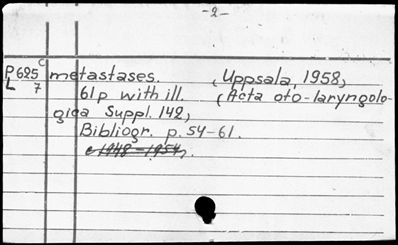 -2-
C
P625 metastases. (Uppsala, 1958,)
L 7 61p with ill. (Acta oto-laryngolo-
gica Suppl. 142,)
Bibliogr. p. 54-61.
c 1948-1954,.